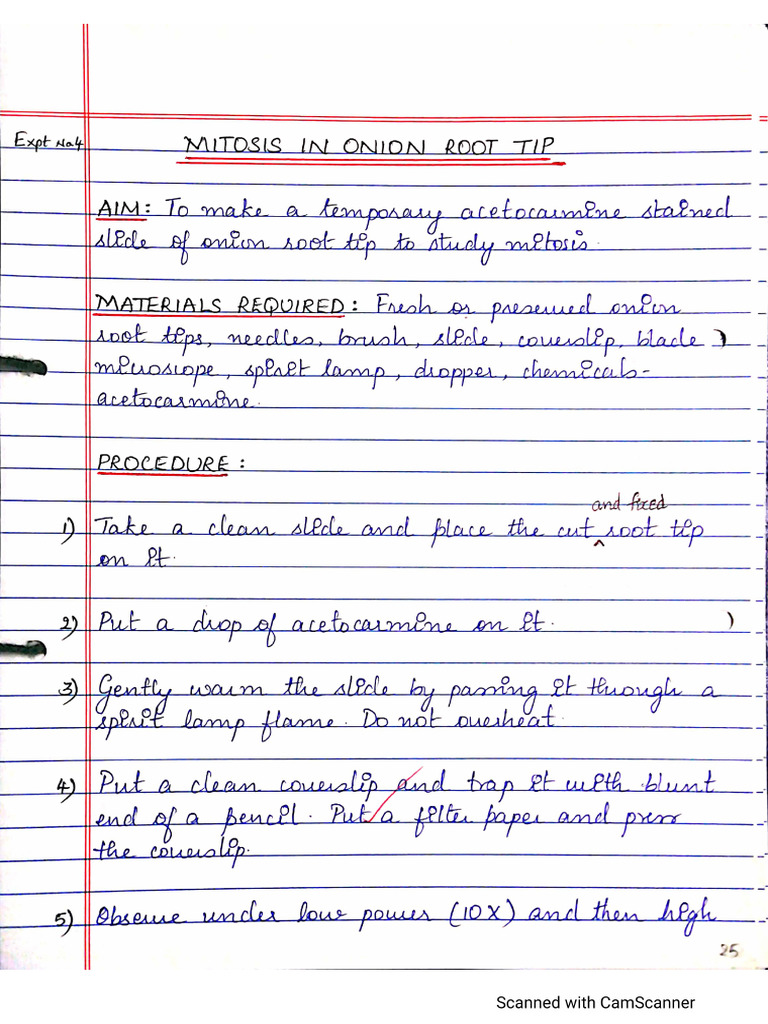 Expt No 4
MITOSIS IN ONION ROOT TIP
AIM: To make a temporary acetocarmine stained
slide of onion root tip to study mitosis.
MATERIALS REQUIRED: Fresh or preserved onion
root tips, needles, brush, slide, coverslip, blade
microscope, spirit lamp, dropper, chemicals-
acetocarmine.
PROCEDURE:
and fixed
1) Take a clean slide and place the cut ‸ root tip
on it.
2) Put a drop of acetocarmine on it.
3) Gently warm the slide by passing it through a
spirit lamp flame. Do not overheat.
4) Put a clean coverslip and trap it with blunt
end of a pencil. Put a filter paper and press
the coverslip.
5) Observe under low power (10X) and then high
25
Scanned with CamScanner